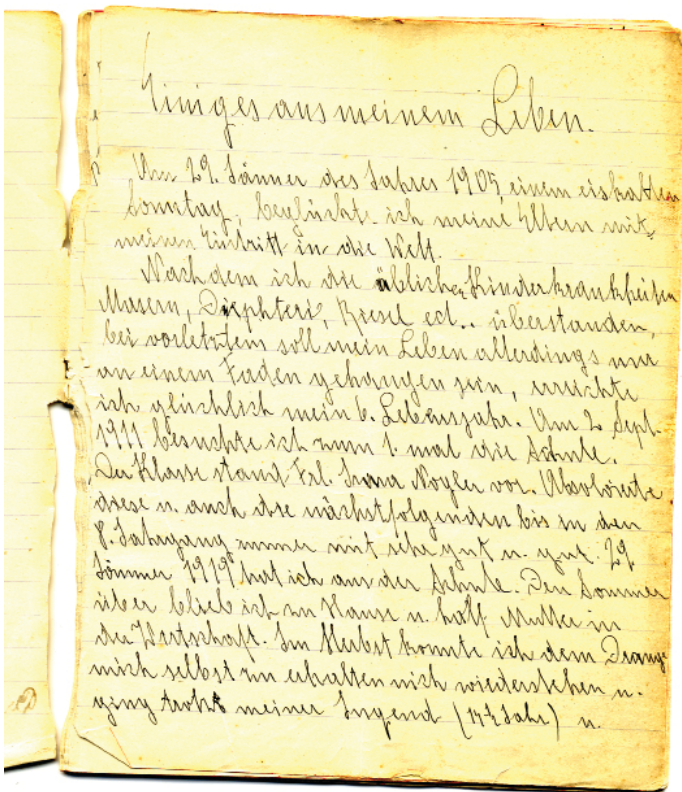 Einiges aus meinem Leben.
Am 29. Jänner des Jahres 1905, einem eiskalten
Sonntag, beglückte ich meine Eltern mit
meinen Eintritt in die Welt.
Nachdem ich die üblichen Kinderkrankheiten
Masern, Diephteri, ect.. überstanden,
bei vorletztem soll mein Leben allerdings nur
an einem Faden gehangen sein, erreichte
ich glücklich mein 6. Lebensjahr. Am 2. Sept.
1911 besuchte ich zum 1. mal die Schule.
Der Klasse stand Frl. Nogler vor. Absolvierte
diese u. auch die nächstfolgenden bis zu den
8. Jahrgang immer mit sehr gut u. gut. 29.
Jänner 1919 trat ich aus der Schule. Den Sommer
über blieb ich zu Hause u. half Mutter in
der Wirtschaft. Im Herbst konnte ich dem Drange
mich selbst zu erhalten nich wiederstehen u.
ging trotz meiner Jugend (14½ Jahr) u.